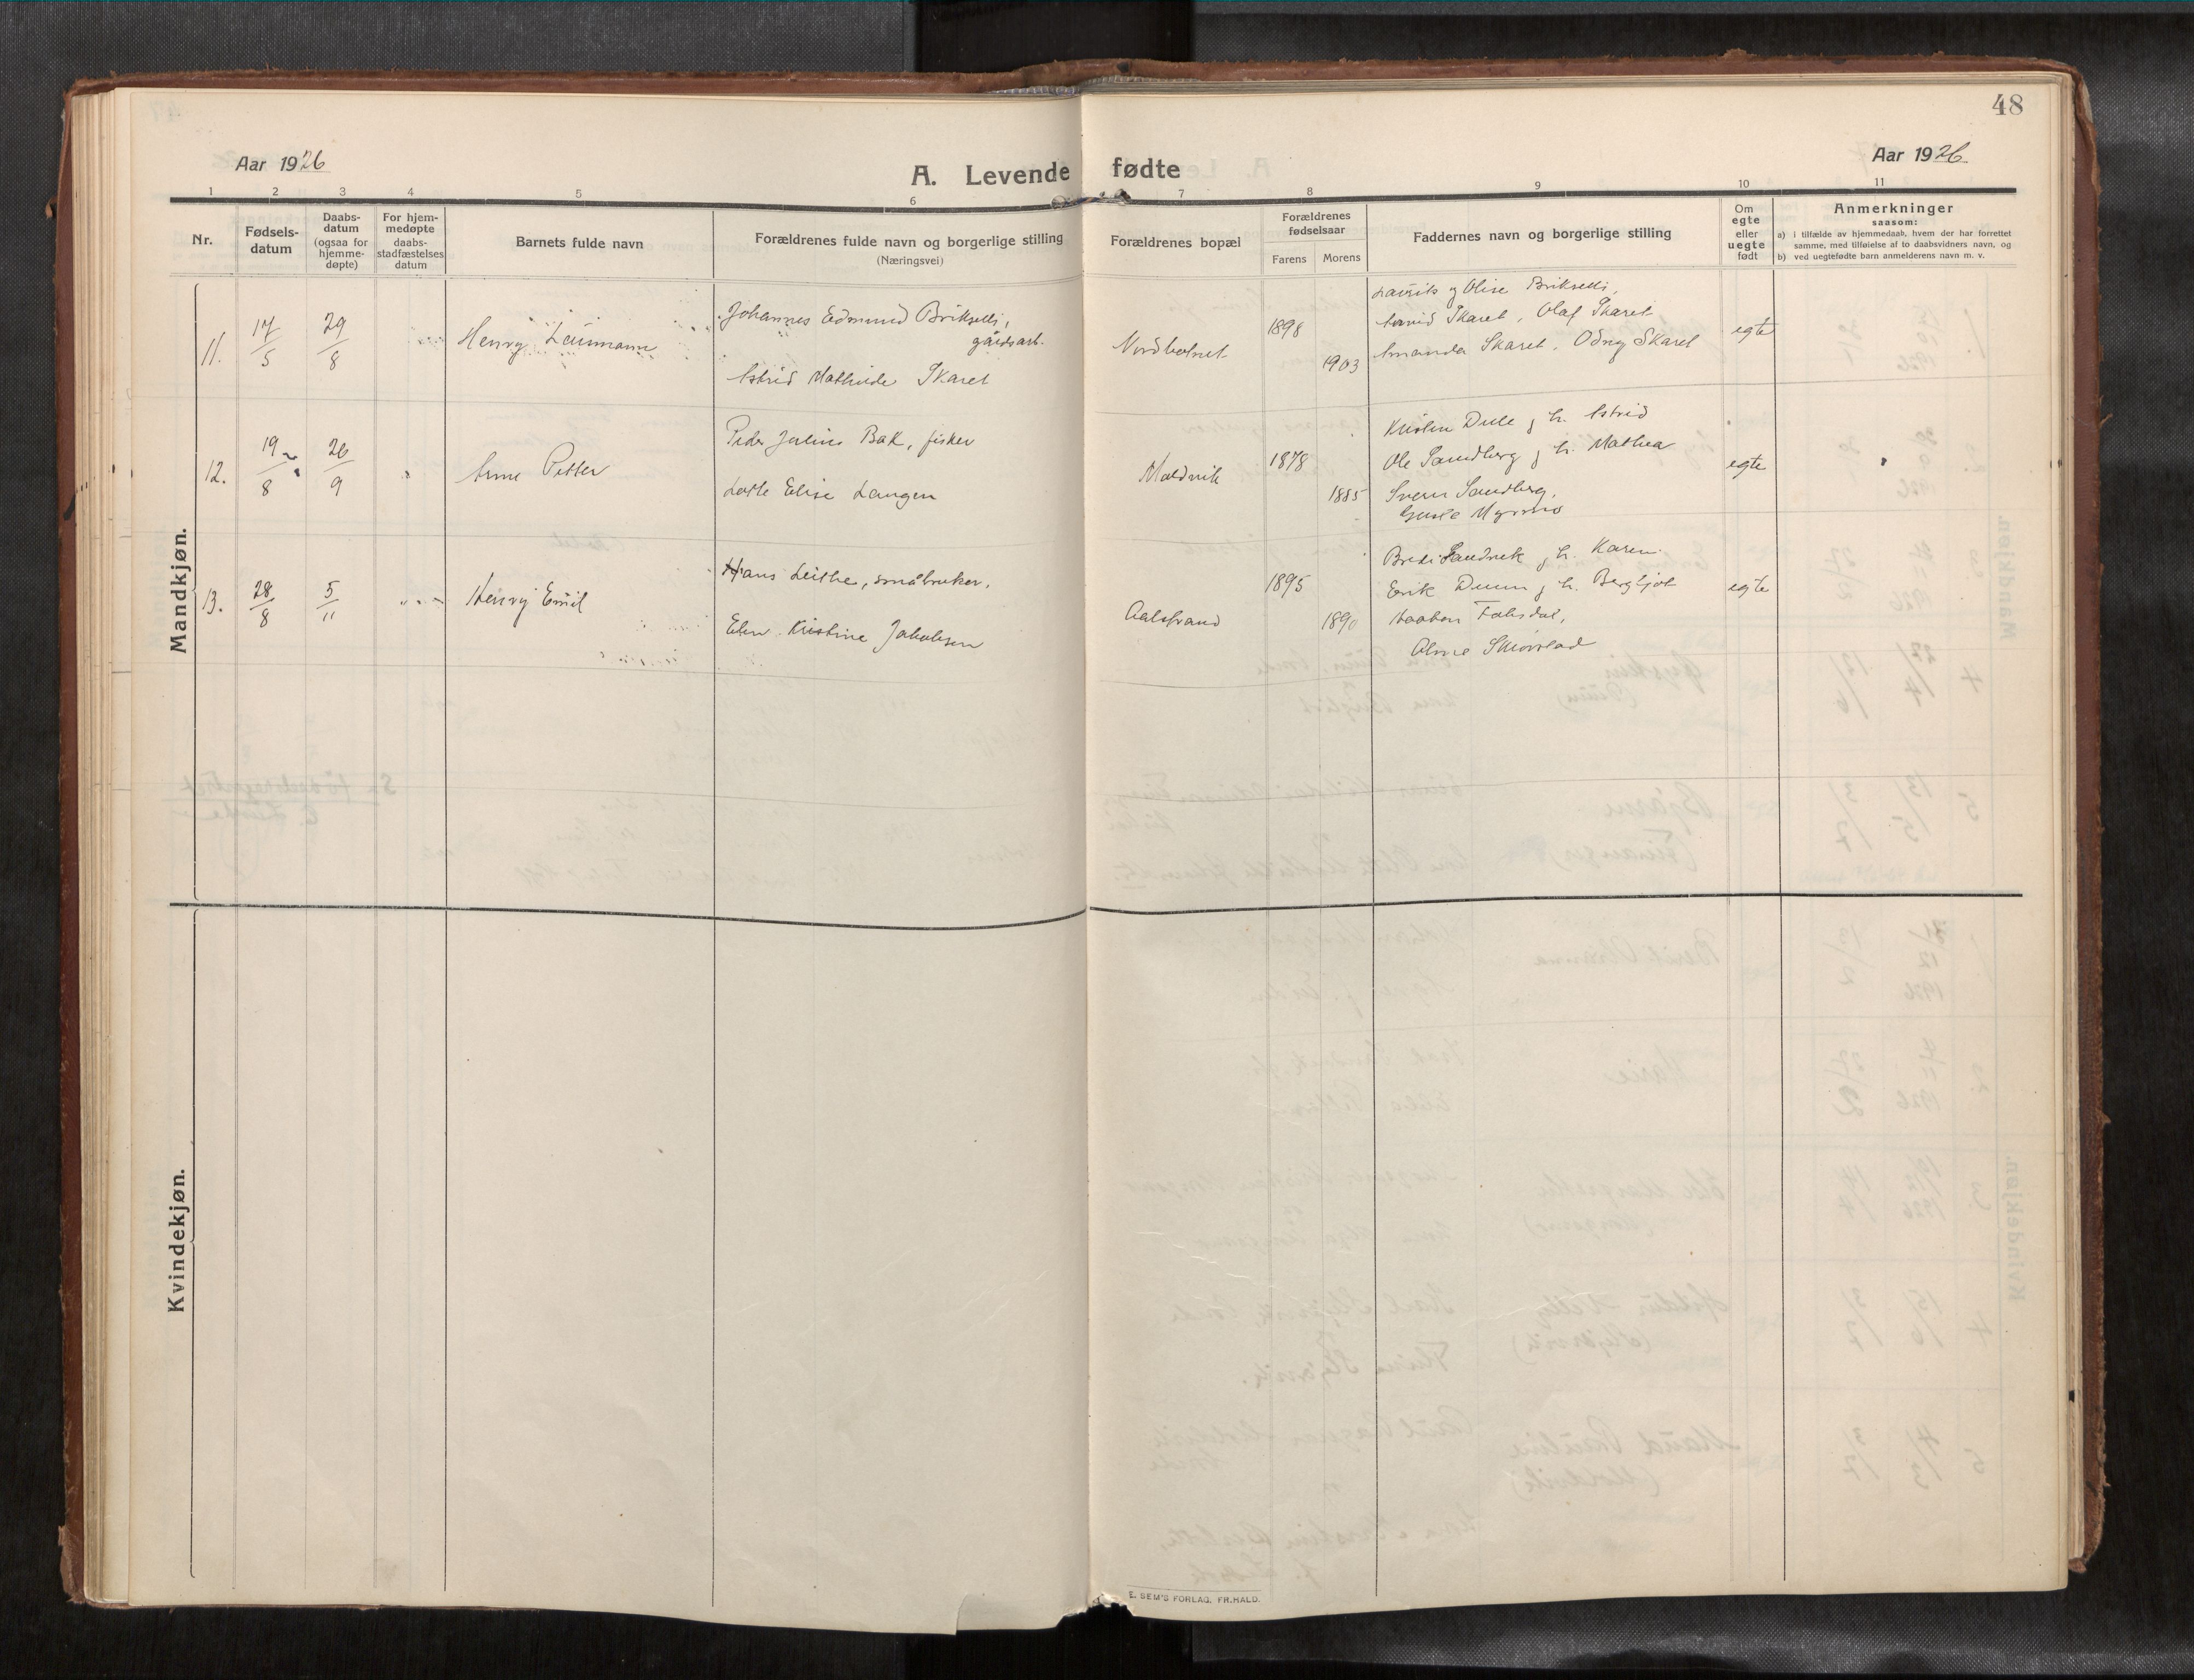 48
Aar 1926
Aar 1926
A. Levende fødte
1 2 3 4 5 6 7 8 9 10 11
Nr.
Fødsels-
datum
Daabs-
datum
(ogsaa for
hjemme-
døpte)
For hjem-
medøpte
daabs-
stadfæstelses
datum
Barnets fulde navn
Forældrenes fulde navn og borgerlige stilling
(Næringsvei)
Forældrenes bopæl
Forældrenes
fødselsaar
Farens
Morens
Faddernes navn og borgerlige stilling
Om
egte
eller
uegte
født
Anmerkninger
saasom:
a) i tilfælde av hjemmedaab, hvem der har forrettet
samme, med tilføielse af to daabsvidners navn, og
b) ved uegtefødte barn anmelderens navn m. v.
Mandkjøn.
11. 17/5 29/8 Henry Laumann
Johannes Edmund Brikselli,
gårdsarb.
Astrid Mathilde Skaret
Nordbotnet
1898
1903
Laurits og Olise Brikselli,
Arvid Skaret, Olaf Skaret
Amanda Skaret, Odny Skaret
egte
12. 19/8 26/9 Arne Petter
Peder Julius Bak, fisker
Lotte Elise Langen
Moldvik
1878
1885
Kristen Dule g h. Astrid
Ole Sandberg g h. Mathea
Sverre Sandberg,
Myrmo
egte
13. 28/8 5/11 Henry Emil
Hans Leithe, småbruker.
Elen Kristine Jakobsen
Aalstrand
1895
1890
Sandvik g h. Karen
Erik Duun g h. Bergljot
Haakon
Alma
egte
Kvindekjøn.
E. SEM'S FORLAG, FR.HALD.